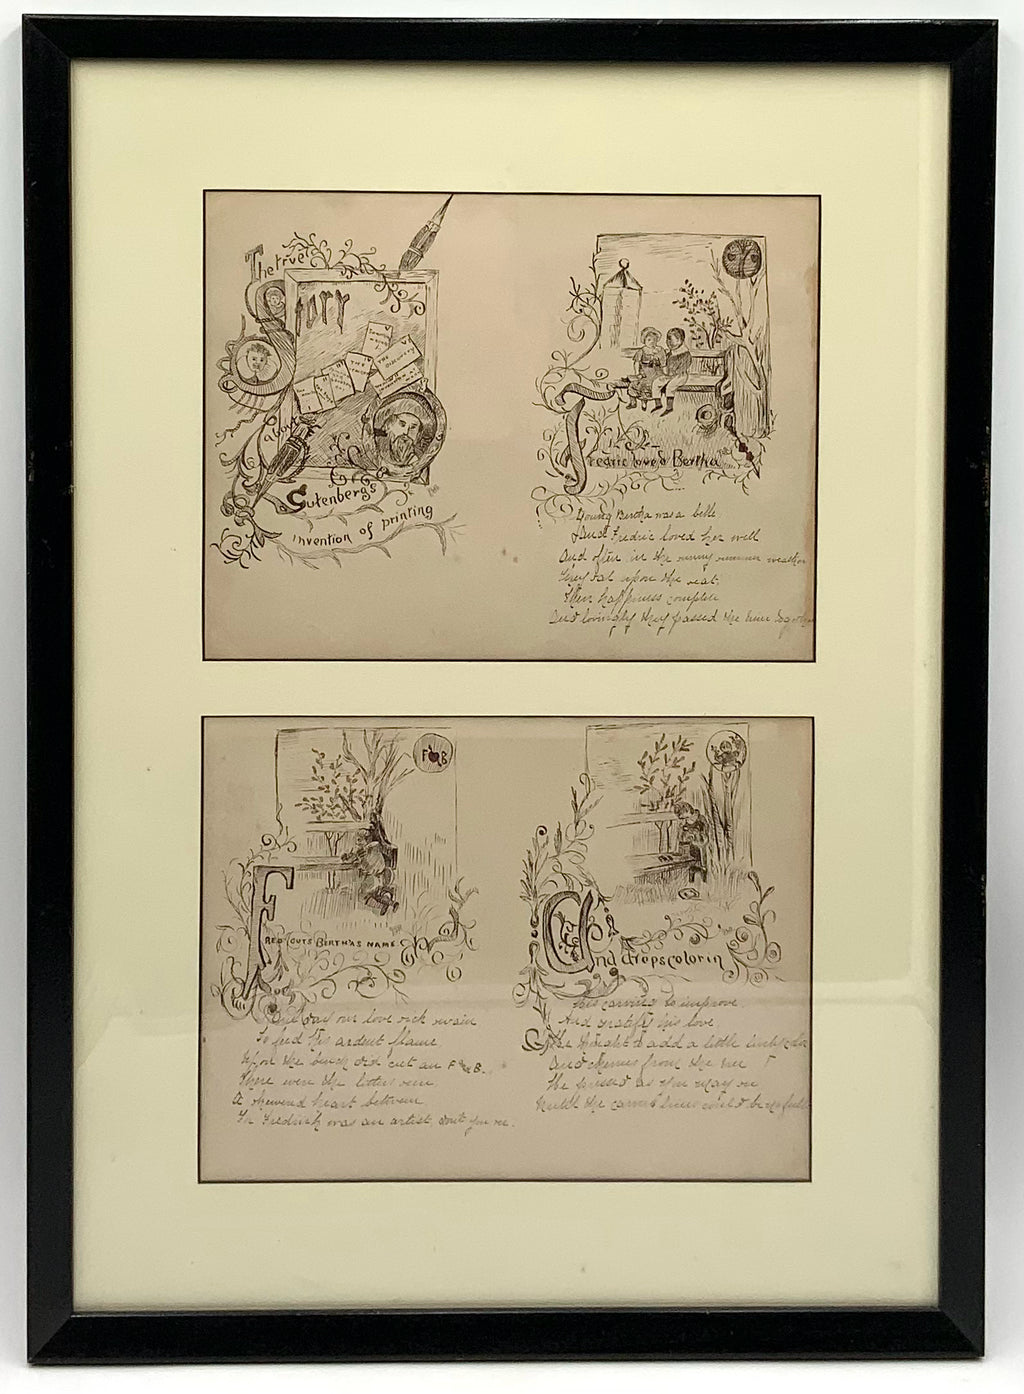 The true
Story
about
Gutenbergs
invention of printing
Fredric loved Bertha
Young Bertha was a belle
And Fredric loved her well
And often in the sunny summer weather
They sat upon the seat,
Their happiness complete
And lovingly they passed the time together
F B
Fred cuts Bertha's name
One day our love sick swain
To feed his ardent flame
Upon the bench did cut an F & B.
There were the letters seen
A skewered heart between
For Fredrick was an artist, don't you see.
And drops color in
His carving to improve
And gratify his love
He thought to add a little
And cherries from the tree
He pressed as you may see
Until the carved lines could be